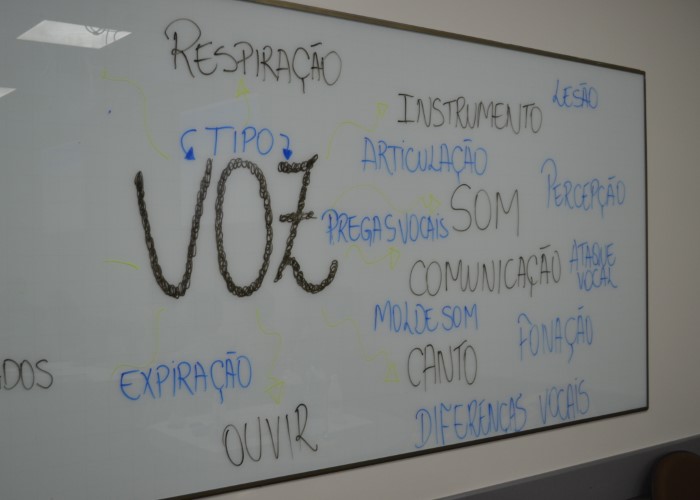 RESPIRAÇÃO
LESÃO
INSTRUMENTO
TIPO
ARTICULAÇÃO
VOZ
PERCEPÇÃO
SOM
PREGAS VOCAIS
COMUNICAÇÃO
ATAQUE
VOCAL
MOLDE SOM
FONAÇÃO
CANTO
EXPIRAÇÃO
DIFERENÇAS VOCAIS
OUVIR